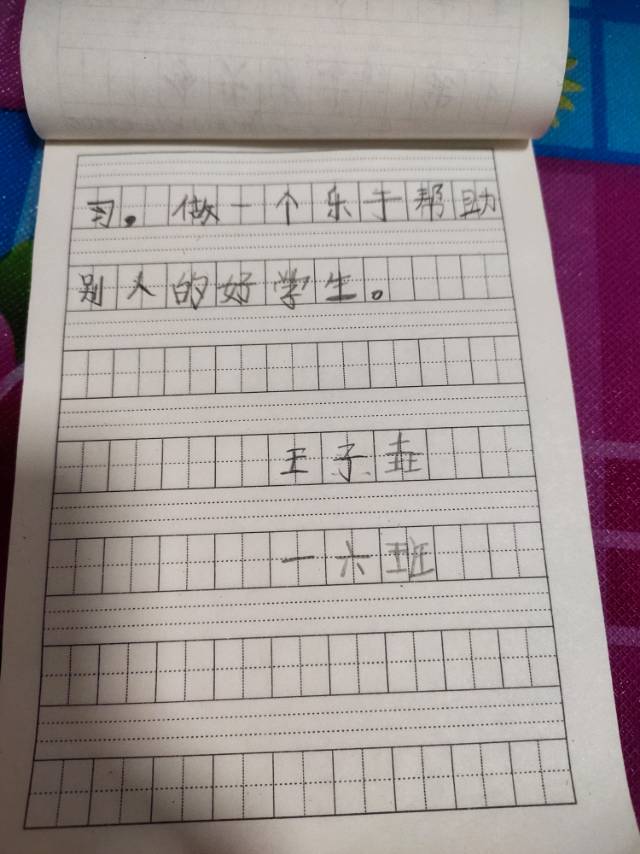 习。做一个乐于帮助
别人的好学生。
王子
一六班